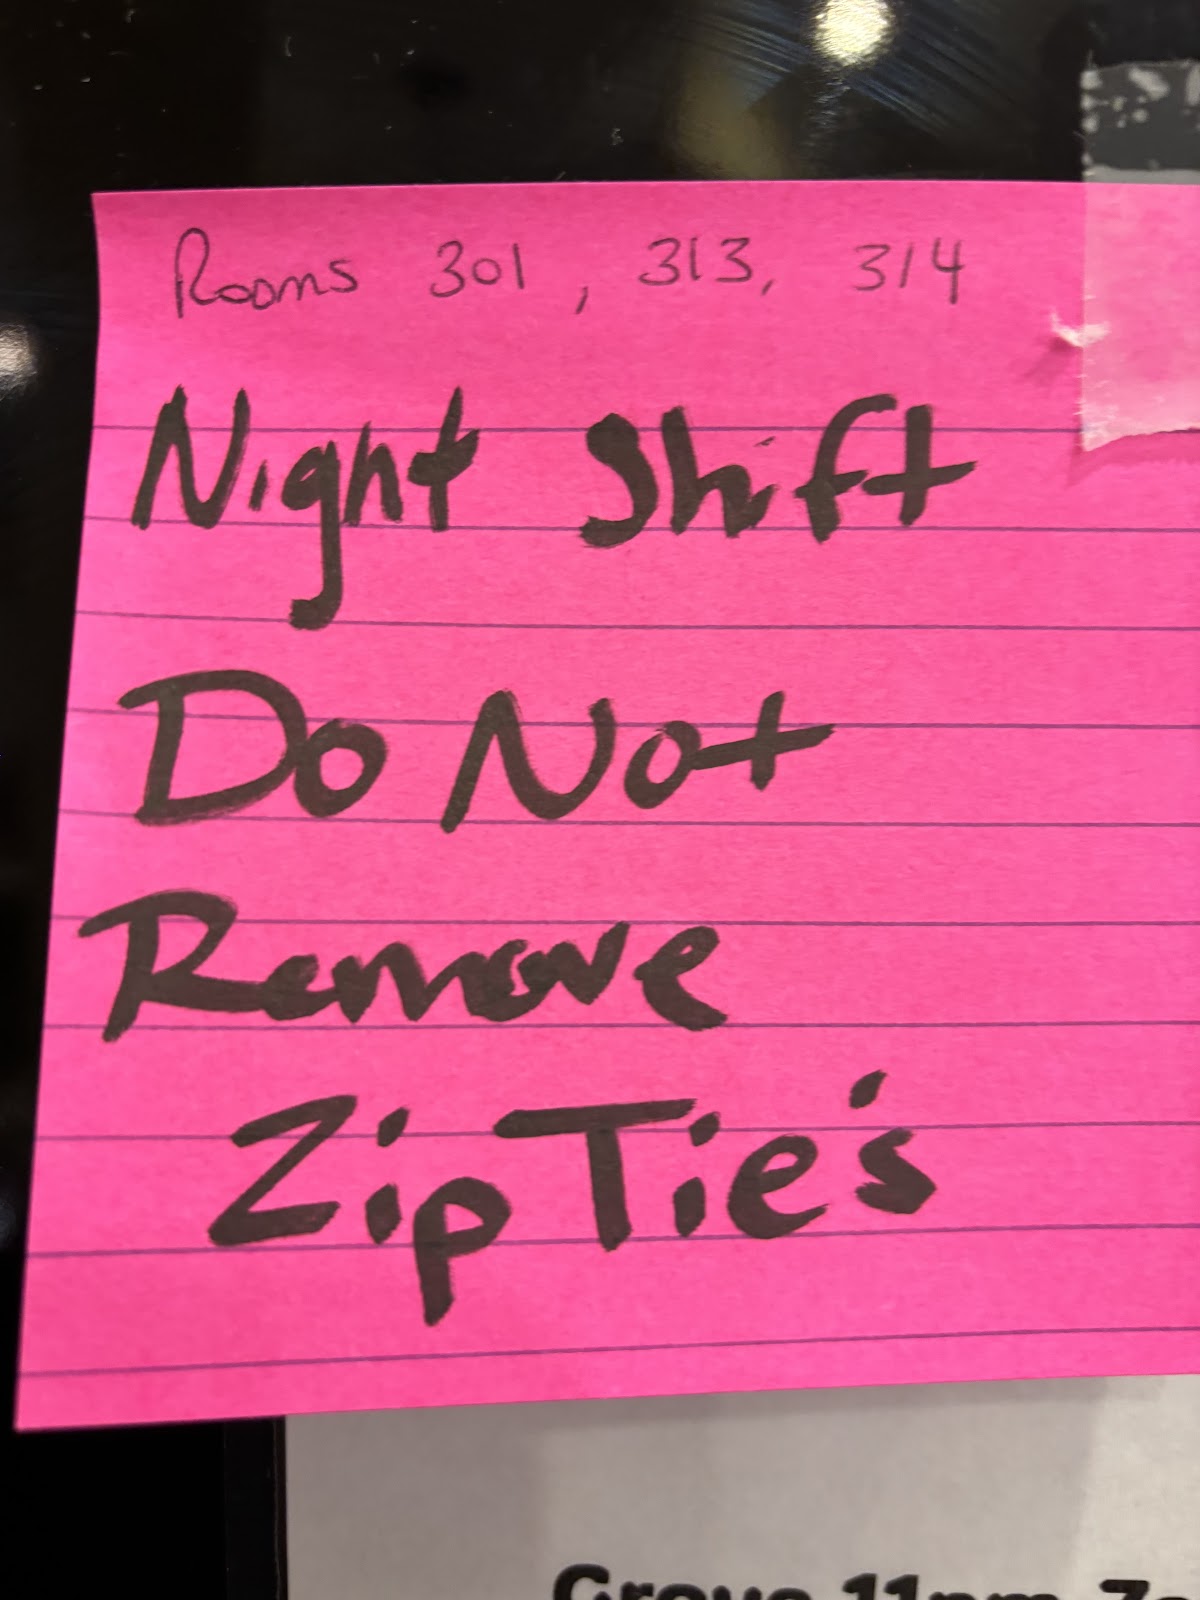 Rooms 301, 313, 314
Night Shift
Do Not
Remove
Zip Tie's
11pm